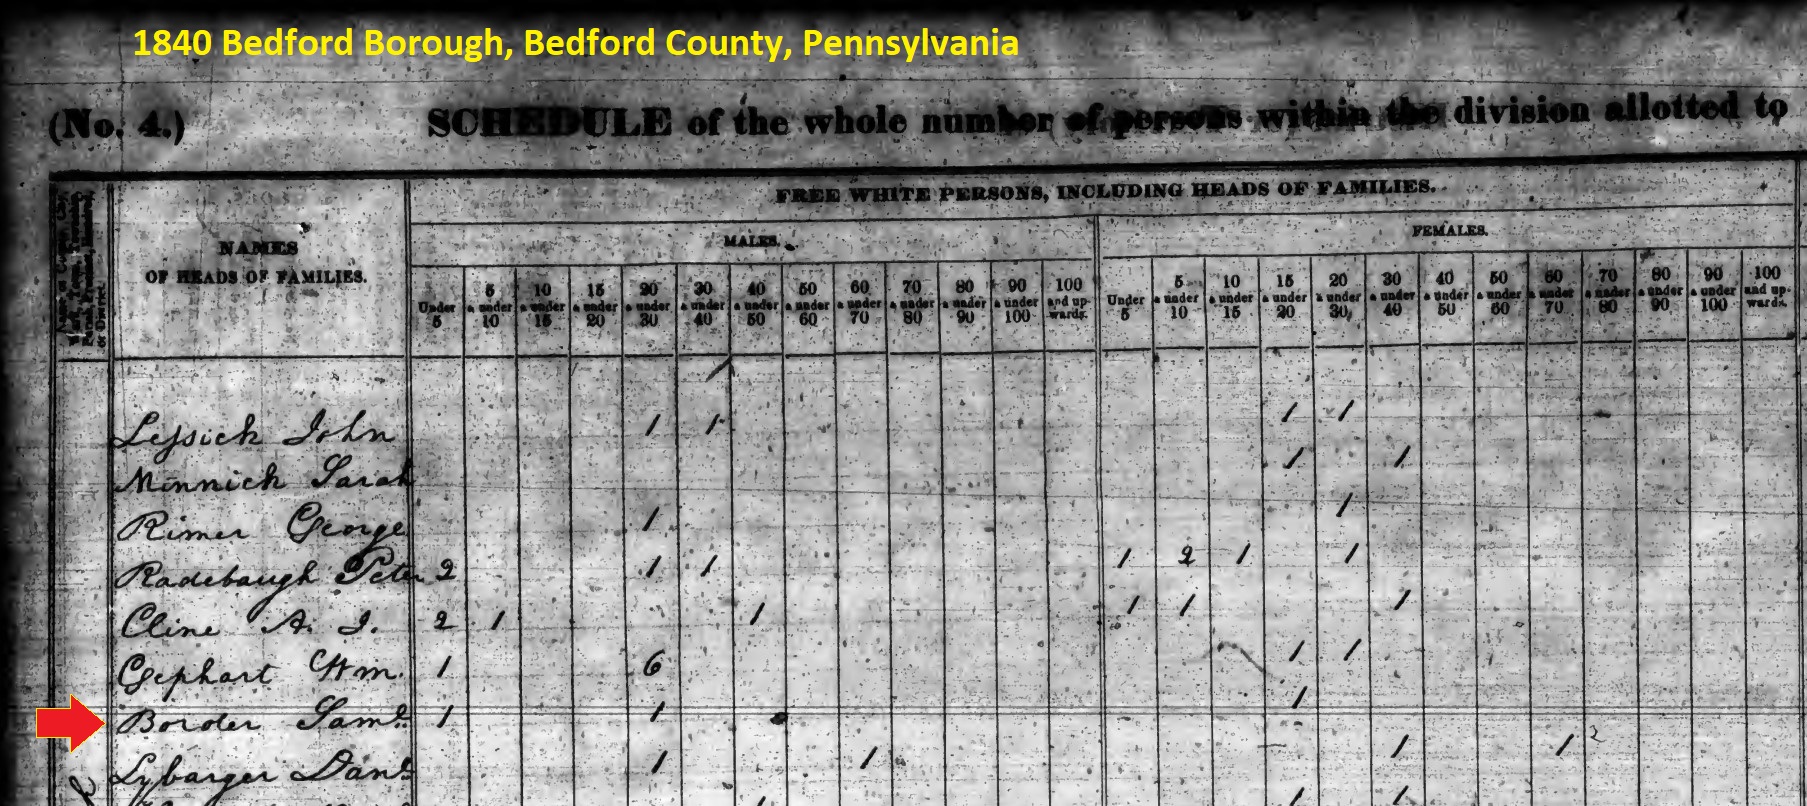 1840 Bedford Borough, Bedford County, Pennsylvania
(No. 4.) SCHEDULE of the whole number of persons within the division allotted to
FREE WHITE PERSONS, INCLUDING HEADS OF FAMILIES.
NAMES
OF HEADS OF FAMILIES.
MALES.
FEMALES.
Under 5
5 & under 10
10 & under 15
15 & under 20
20 & under 30
30 & under 40
40 & under 50
50 & under 60
60 & under 70
70 & under 80
80 & under 90
90 & under 100
100 and up-wards.
Under 5
5 & under 10
10 & under 15
15 & under 20
20 & under 30
30 & under 40
40 & under 50
50 & under 60
60 & under 70
70 & under 80
80 & under 90
90 & under 100
100 and up-wards.
Lessick John 1 1 1 1
Minnick Sarah 1 1
Rimer George 1 1
Radebaugh Peter 2 1 1 1 2 1 1
Cline A. J. 2 1 1 1 1 1
Gephart Wm. 1 6 1 1
Border Saml. 1 1 1
Lybarger Danl. 1 1 1 1